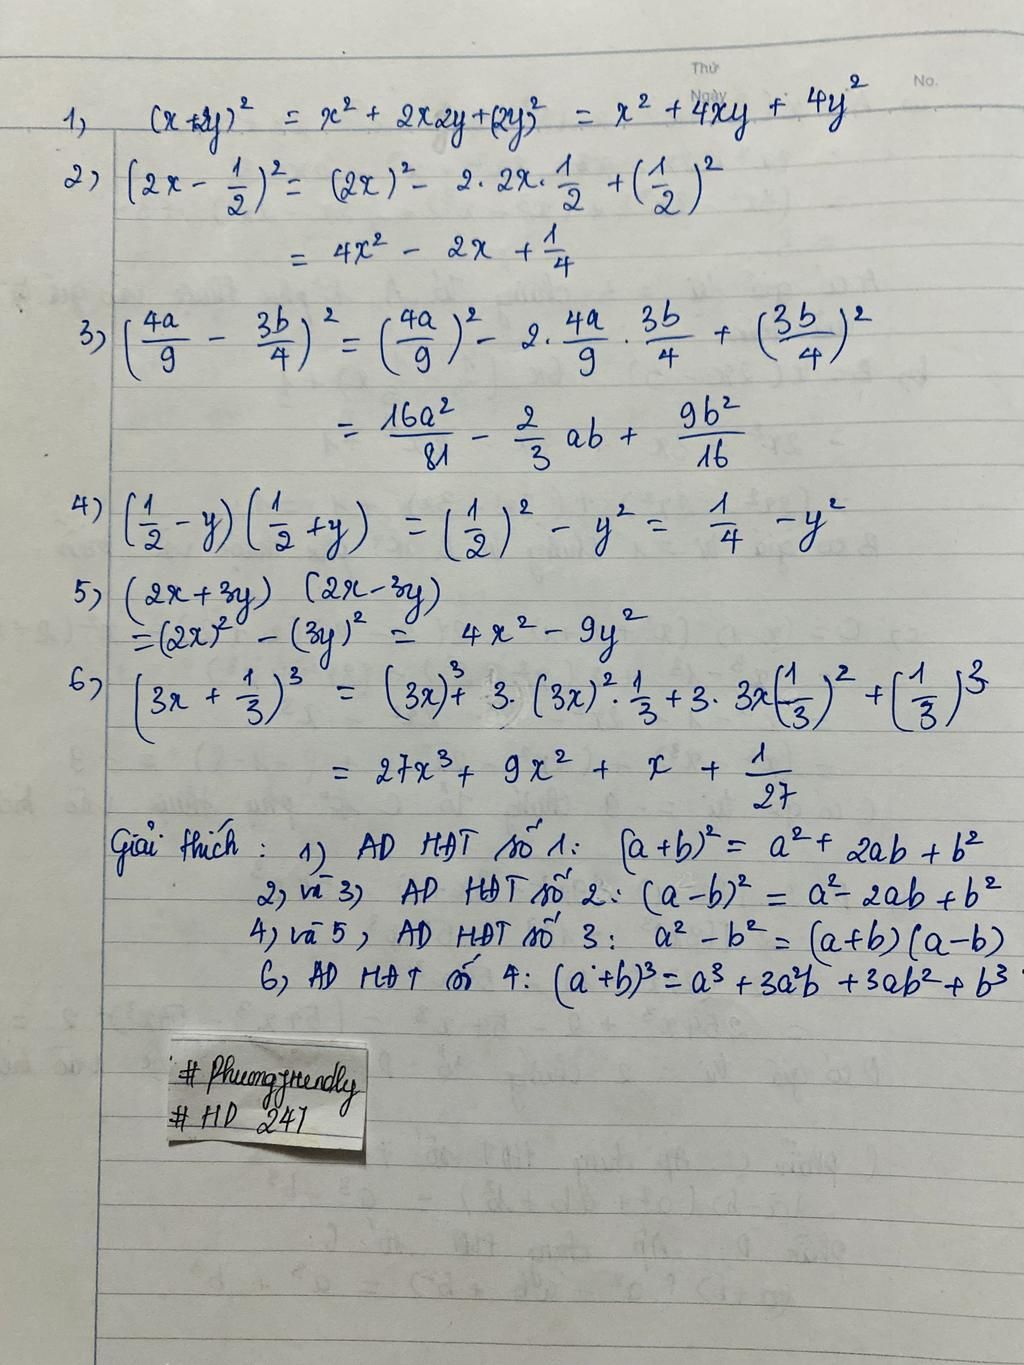 Thứ
Ngày
No.
1) (x+2y)² = x² + 2x2y+(2y)² = x² + 4xy + 4y²
2) (2x - 1/2)² = (2x)² - 2.2x.1/2 + (1/2)²
= 4x² - 2x + 1/4
3) (4a/9 - 3b/4)² = (4a/9)² - 2.4a/9.3b/4 + (3b/4)²
= 16a²/81 - 2/3 ab + 9b²/16
4) (1/2 - y)(1/2 + y) = (1/2)² - y² = 1/4 - y²
5) (2x+3y) (2x-3y)
=(2x)² - (3y)² = 4x² - 9y²
6) (3x + 1/3)³ = (3x)³ + 3.(3x)².1/3 + 3.3x(1/3)² + (1/3)³
= 27x³ + 9x² + x + 1/27
Giải thích : 1) AD HĐT số 1: (a+b)² = a² + 2ab + b²
2) và 3) AD HĐT số 2: (a-b)² = a² - 2ab + b²
4) và 5) AD HĐT số 3: a² - b² = (a+b)(a-b)
6) AD HĐT số 4: (a+b)³ = a³ + 3a²b + 3ab² + b³
# Phuongfriendly
# HD 247